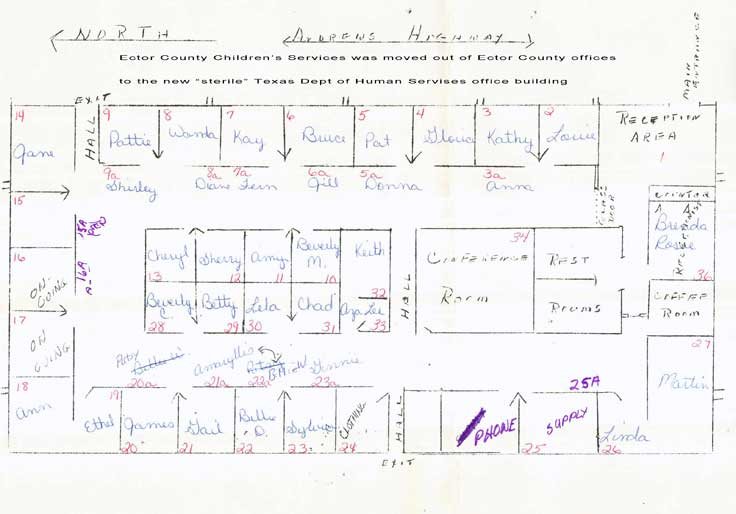 NORTH ANDREWS HIGHWAY
Ector County Children's Services was moved out of Ector County offices
to the new "sterile" Texas Dept of Human Servises office building
MAIN ENTRANCE
EXIT
14 HALL 9 8 7 6 5 4 3 2 RECEPTION
Jane Pattie Wanda Kay Bruce Pat Gloria Kathy Louie AREA
1
9a 8a 7a 6a 5a 3a
Shirley Diane Fern Jill Donna Anna
15 DOOR COUNTER
15A Brenda
Rosie
RECEPTIONIST
36
16 16A
ON-GOING
Cheryl Sherry Amy Beverly M. Keith
13 12 11 10 32
CONFERENCE ROOM 34
REST ROOMS
Beverly C. Betty Lela Chad Aza Lee
28 29 30 31 33
HALL
COFFEE ROOM
17
ON GOING
27
Martin
Patsy Amaryllis B.A. Ginnie
20a 21a 22a 23a
18
Ann
19
Ethel James Gail Billie D. Sylvia CLOTHING
20 21 22 23 24
HALL
PHONE
25A
SUPPLY
25
Linda
26
EXIT